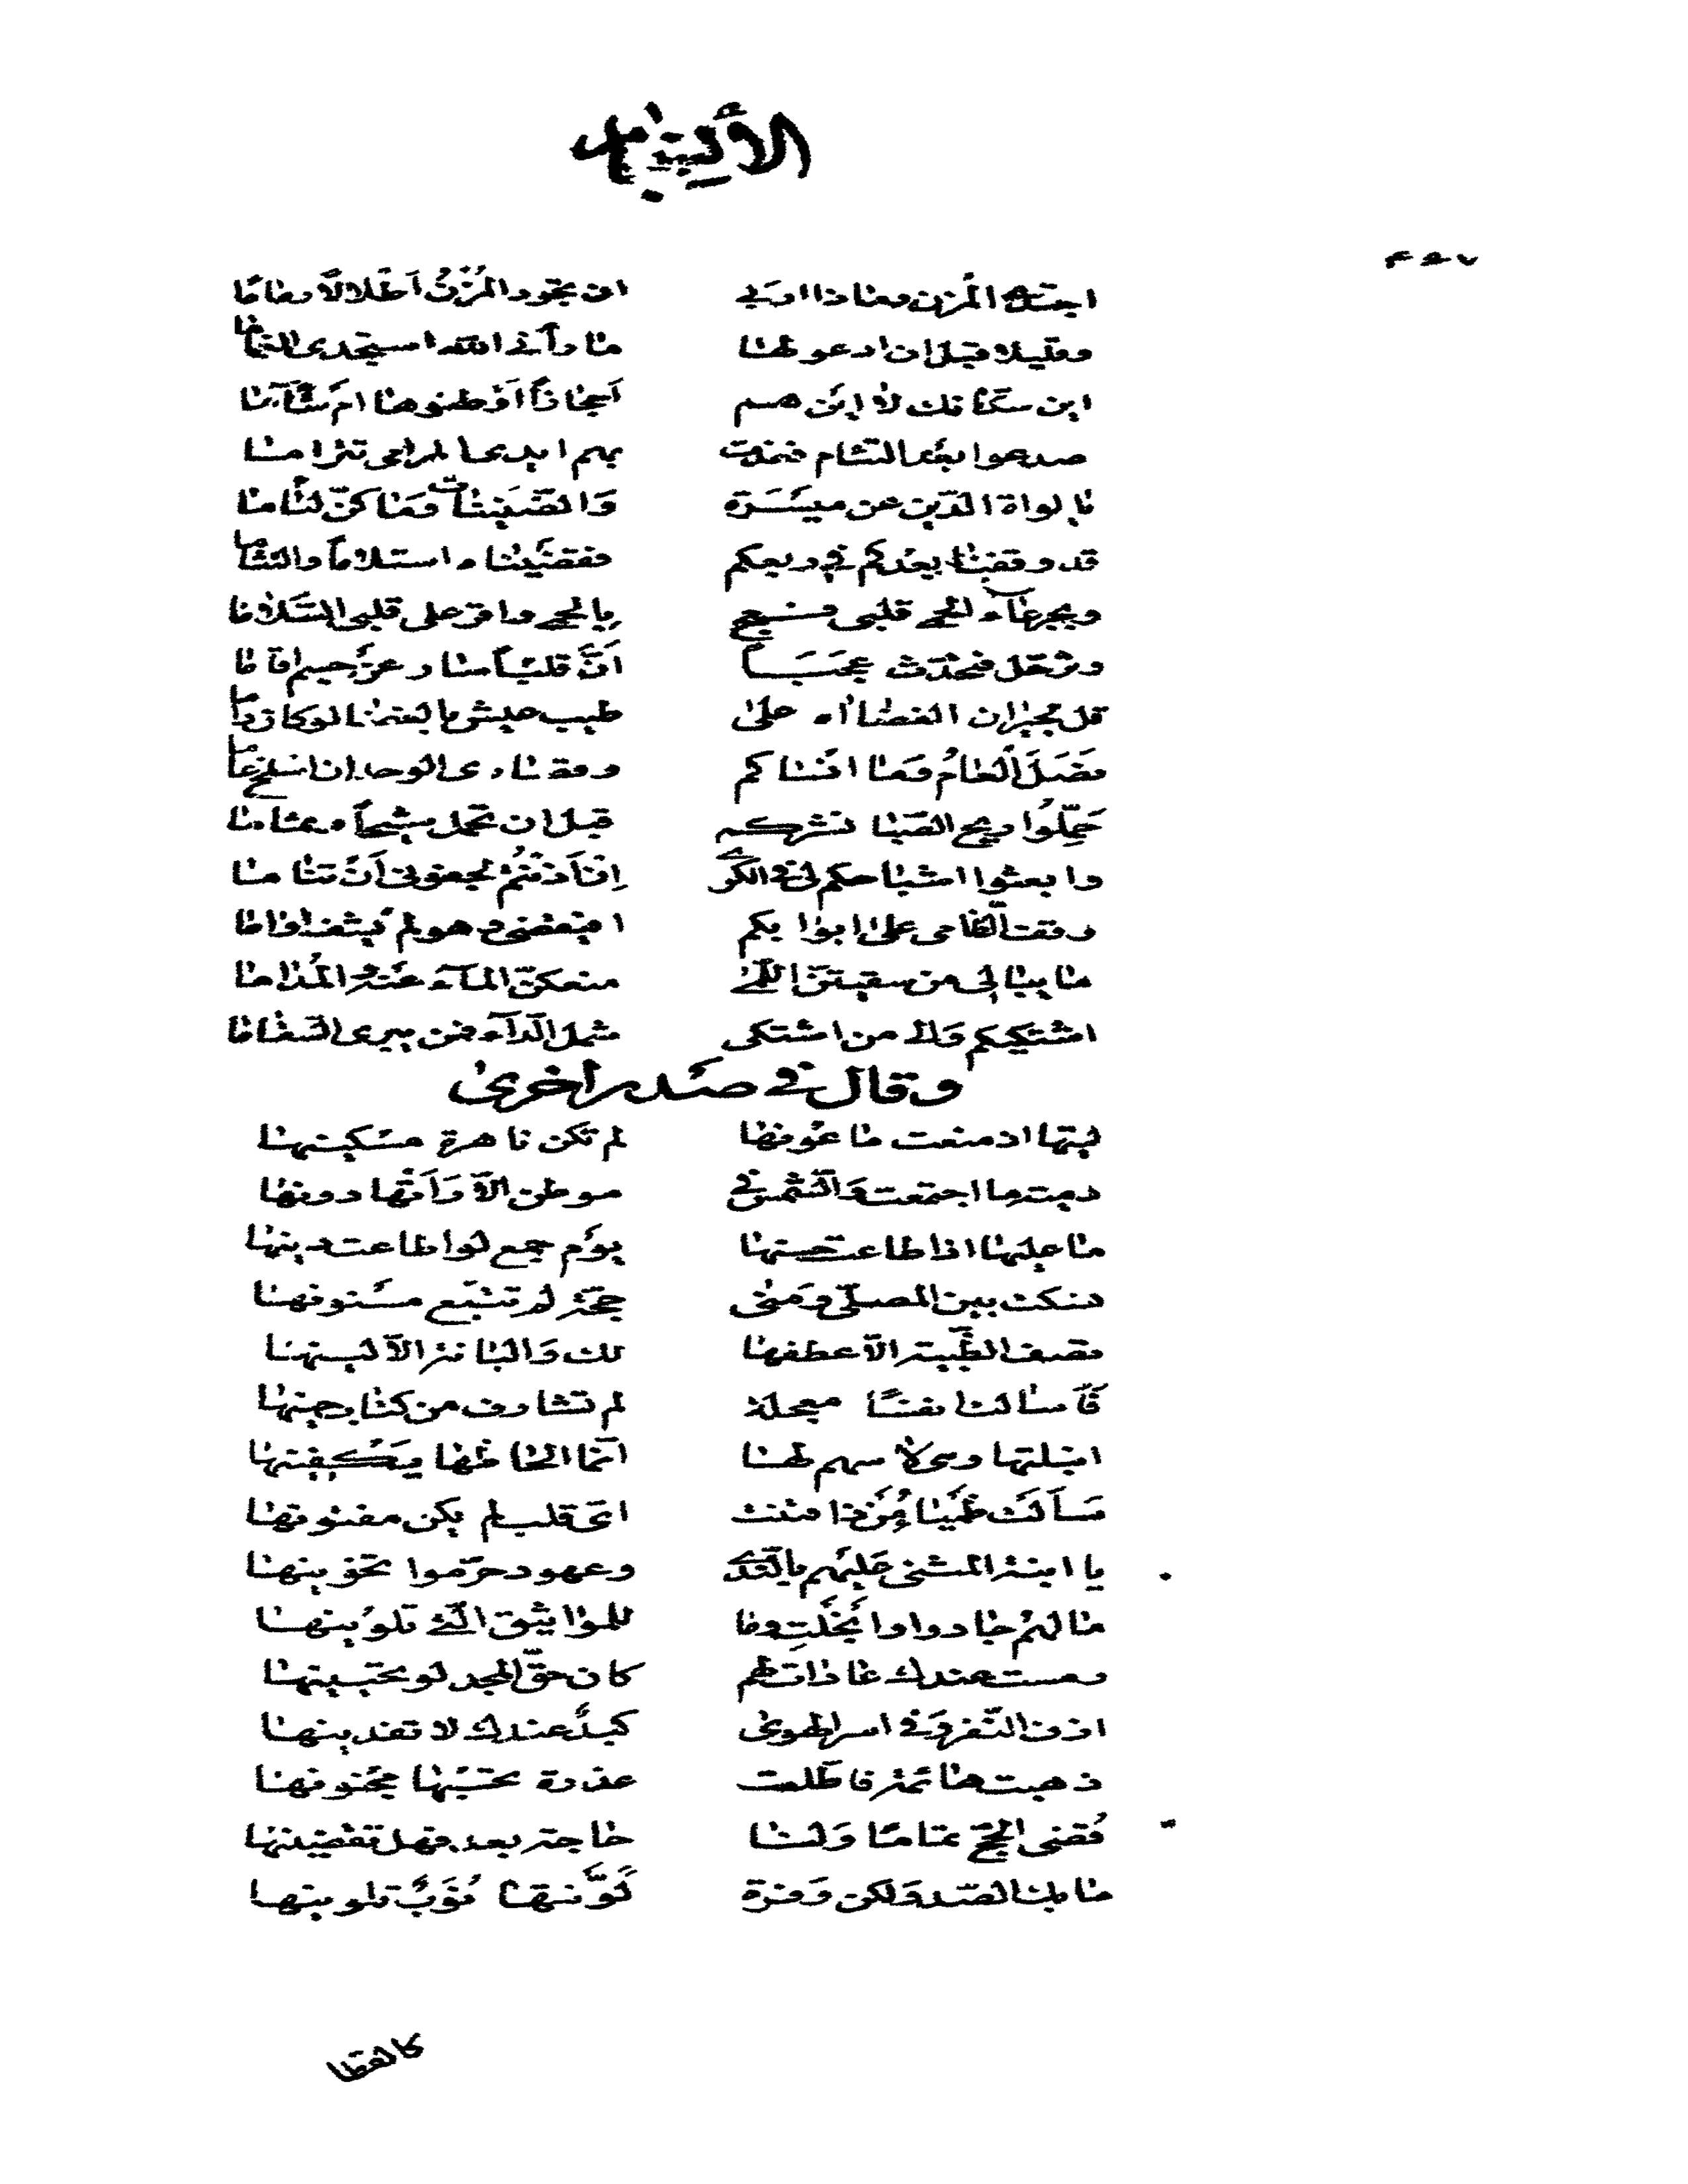 اجتدي المزن وماذا اربي ان تجود المزن أطلالاً رماما
وقليلا قبل ان ادعو لها ما رآني الله استجدي الغماما
اين سكانك لا اين هم أحجازاً أوطنوها ام شآما
صدعوا بعد التئام فغدت بهم ايدي المرامي تترامى
يا لواة الدين عن ميسرة والضنينات وما كن لئاما
قد وقفنا بعدكم في ربعكم فقضيناه استلاماً والتثاما
وبجرعاء الحمى قلبي فعج بالحمى واقر على قلبي السلاما
وترحل فتحدث عجباً أن قلباً سار عن جسم اقاما
قل لجيران الغضا اه على طيب عيش بالغضا لو كان داما
فضل العام وما انساكم وقصارى الوجد ان نسلخ عاما
حملوا ريح الصبا نشركم قبل ان تحمل شيحاً وثماما
وابعثوا اشباحكم لي في الكرى إن أذنتم لجفوني أن تناما
وقفت الظامي على ابوابكم افيقضي وهو لم يشف اواما
ما يبالي من سقيتن اللمى منعكن الماء عنه المداما
اشتكيكم والى من اشتكي شمل الداء فمن يبري السقاما
وقال في صدر أخرى
ليتها اذ منعت ماعونها لم تكن ناهرة مسكينها
دمية ما اجتمعت والشمس في موطن الا وأتها دونها
ما عليها اذا طاعت حسنها يوم جمع لو اطاعت دينها
فتكت بين المصلى ومنى حجة لم تتبع مسنونها
تصف الظبية الا عطفها لك والبانة الا لينها
فأسالت نفساً معجلة لم تشارف من كتاب حينها
اقبلتها وهي لا سهم لها انما الحاظها يكفينها
سألت ظبيا من ذا فتنت اي قلب لم يكن مفتونها
يا ابنة المثنى عليهم بالندى وعهود حرموا تخوينها
ما لهم جادوا وا بخلت وفا للمواثيق التي تلوينها
وعست عندك عاذاتهم كان حق المجد لو تحيينها
اذن النفر وفي اسر الهوى كبد عندك لا تفدينها
ذهبت هائمة فاطلعت عذرة تحسبها مجنونها
قضي الحج تماما ولنا حاجة بعد فهل تقضينها
ما بنا الصد ولكن وفرة لونتها نوب تلوينها
كالقطا